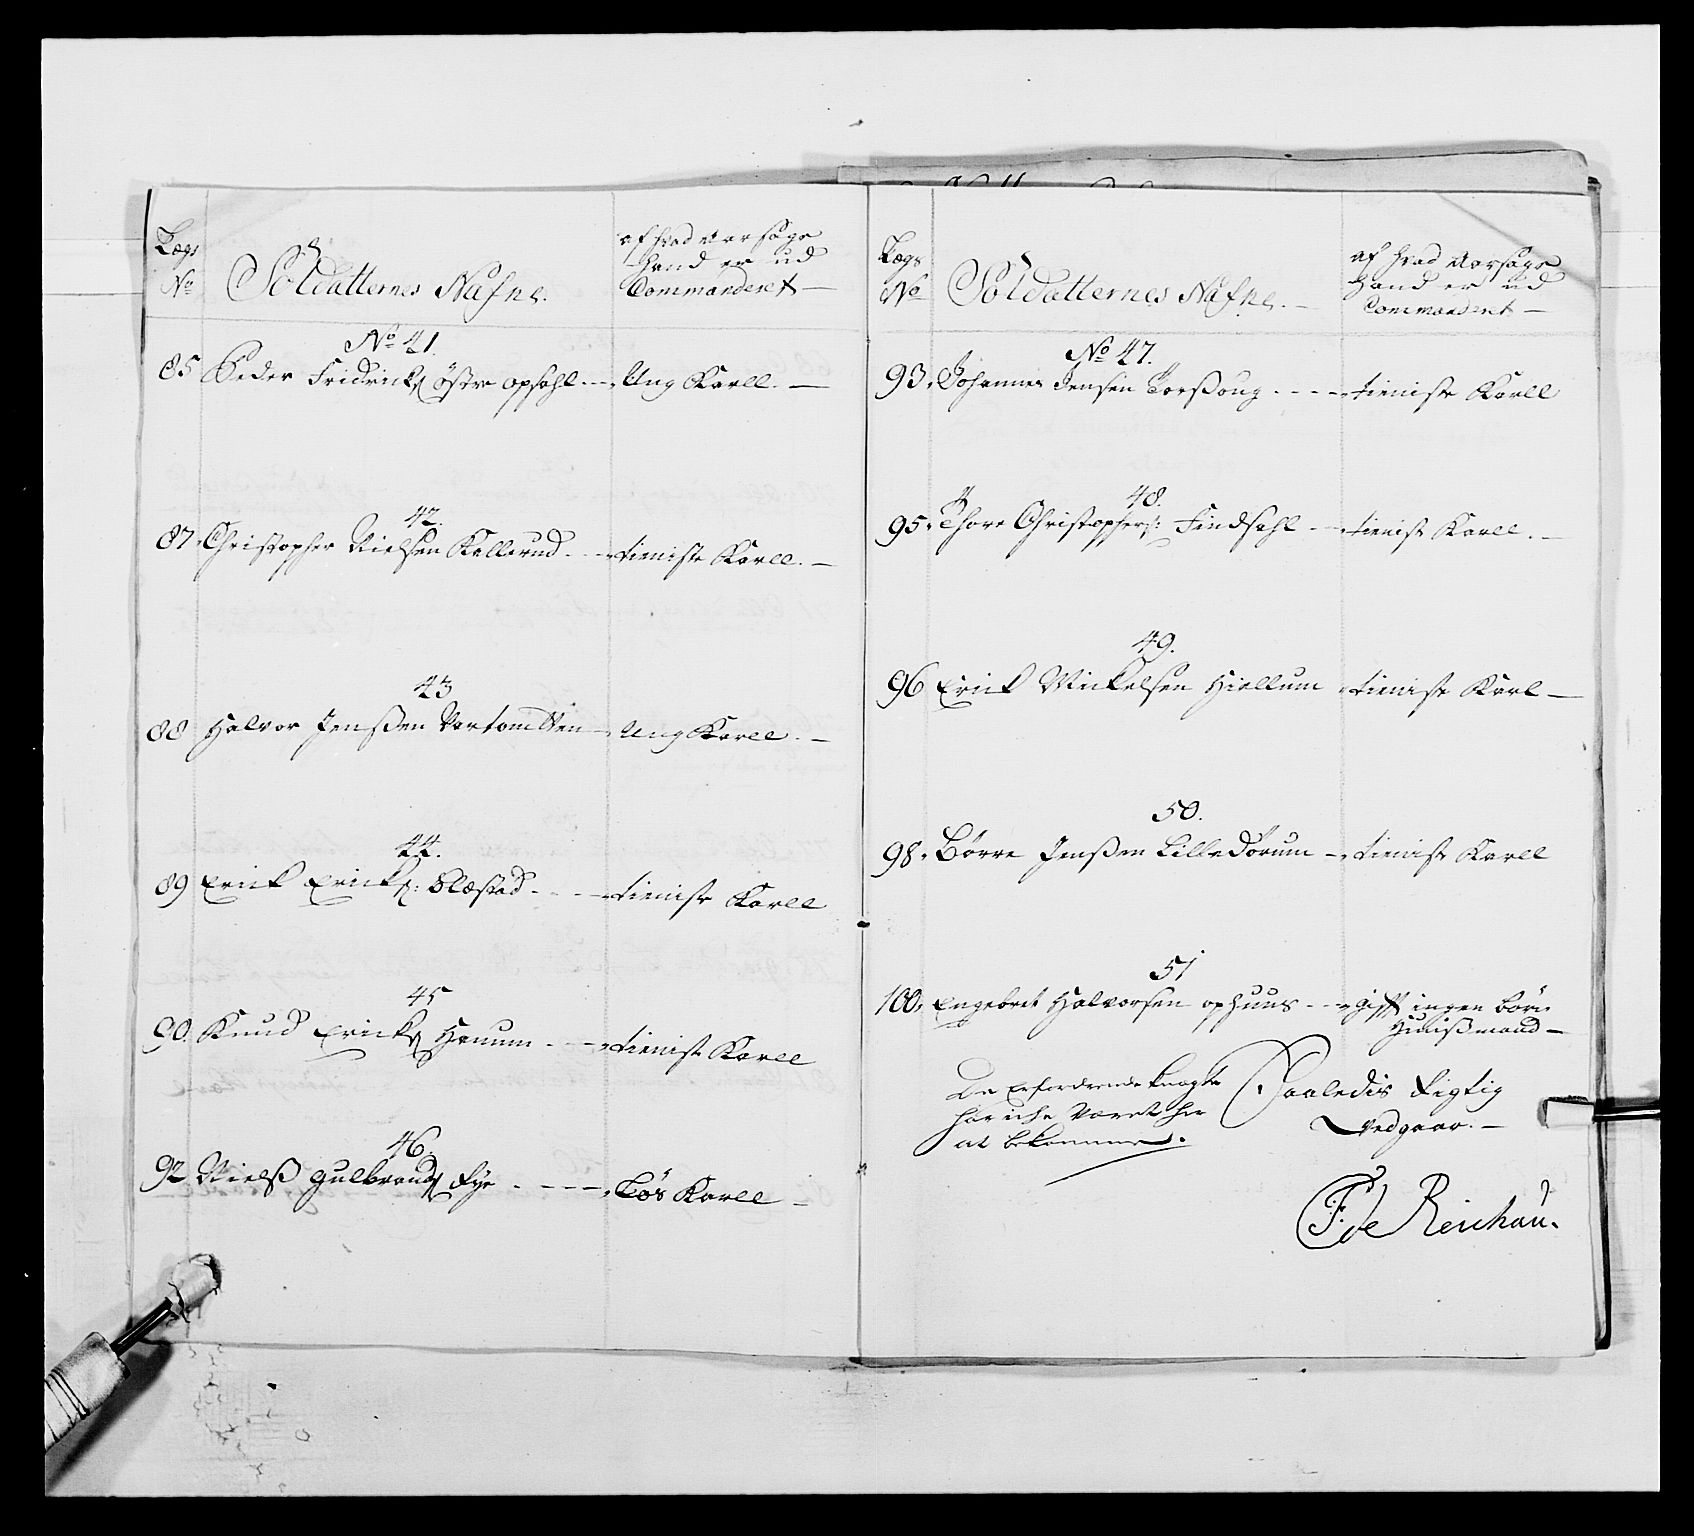 Lægs
No
Soldatternes Nafne.
af hvad Aarsage
Hand er ud
Commanderet —
No 41.
85 Peder Fridricks Östre opsahl - - - Ung Karll. —
42.
87. Christopher Nielsen Kallerud. - - - tieniste Karll. —
43
88 Halvor Jenssen - Ung Karll. —
44.
89 Erick Ericks: Blæstad. - - - tieniste Karll
45
90. Knud Ericks Hanum - - - tieniste Karll
46.
92 Nielss gulbrands Rye - - - - Lös Karll —
Lægs
No
Soldatternes Nafne. —
af hvad Aarsage
Hand er ud
Commanderet —
No 47.
93. Johannes Jensen - - - - tieniste Karll
48.
95. Thore Christophers: Findsahl - - tieniste Karll. —
49.
96 Erick Mickelsen Hiellum tieniste Karl —
50.
98. Börre Jenssen Lille Dörum - tieniste Karll
51
100. Engebret Halvorsen ophuus - - - gift ingen börn
Huussmand —
De Erfordrende knægte
har icke Været her
at bekomme.
Saaledis Rigtig
Vedgaar. —
F: de Reichau.